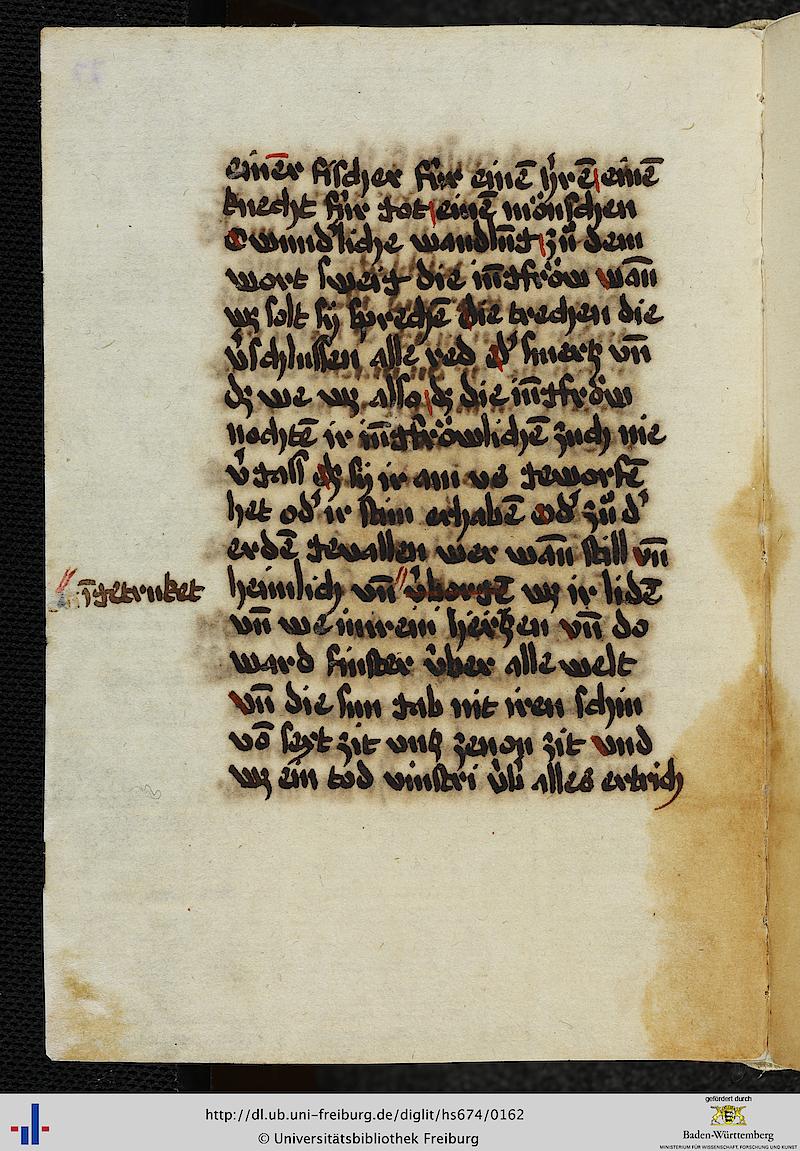 einē̄r fischer fúr einē hrē einē
knecht fúr got einē mönschen
O wund'liche wandlūg zů dem
wort sweig die iūgfröw wan̄
wz solt sy sprechē die trechen die
v̓schlussen alle red d' smertz vn̄
dz we wz allso dz die iūgfröw
nochtē ir iūgfröwlichē zuch nie
v̓gass dz sy ir am vs geworfē
het od' ir stim erhabē od' zů d'
erdē gevallen wer wan̄ still vn̄
īgetruket
heimlich vn̄ v̓borgē wz ir lidē
vn̄ we in irem hertzen vn̄ do
ward finster úber alle welt
vn̄ die sun gab nit iren schin
vō sext zit vntz zenon zit vnd
wz ein tod vinstri úb' alles ertrich
http://dl.ub.uni-freiburg.de/diglit/hs674/0162
© Universitätsbibliothek Freiburg
gefördert durch
Baden-Württemberg
MINISTERIUM FÜR WISSENSCHAFT, FORSCHUNG UND KUNST